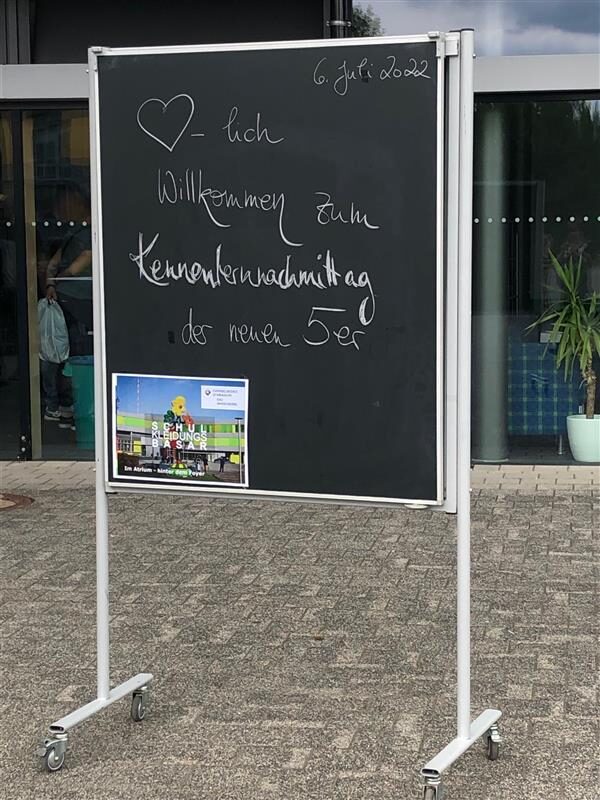 6. Juli 2022
♡-lich
Willkommen zum
Kennenlernnachmittag
der neuen 5er
SCHUL
KLEIDUNGS
BASAR
Im Atrium - hinter dem Foyer